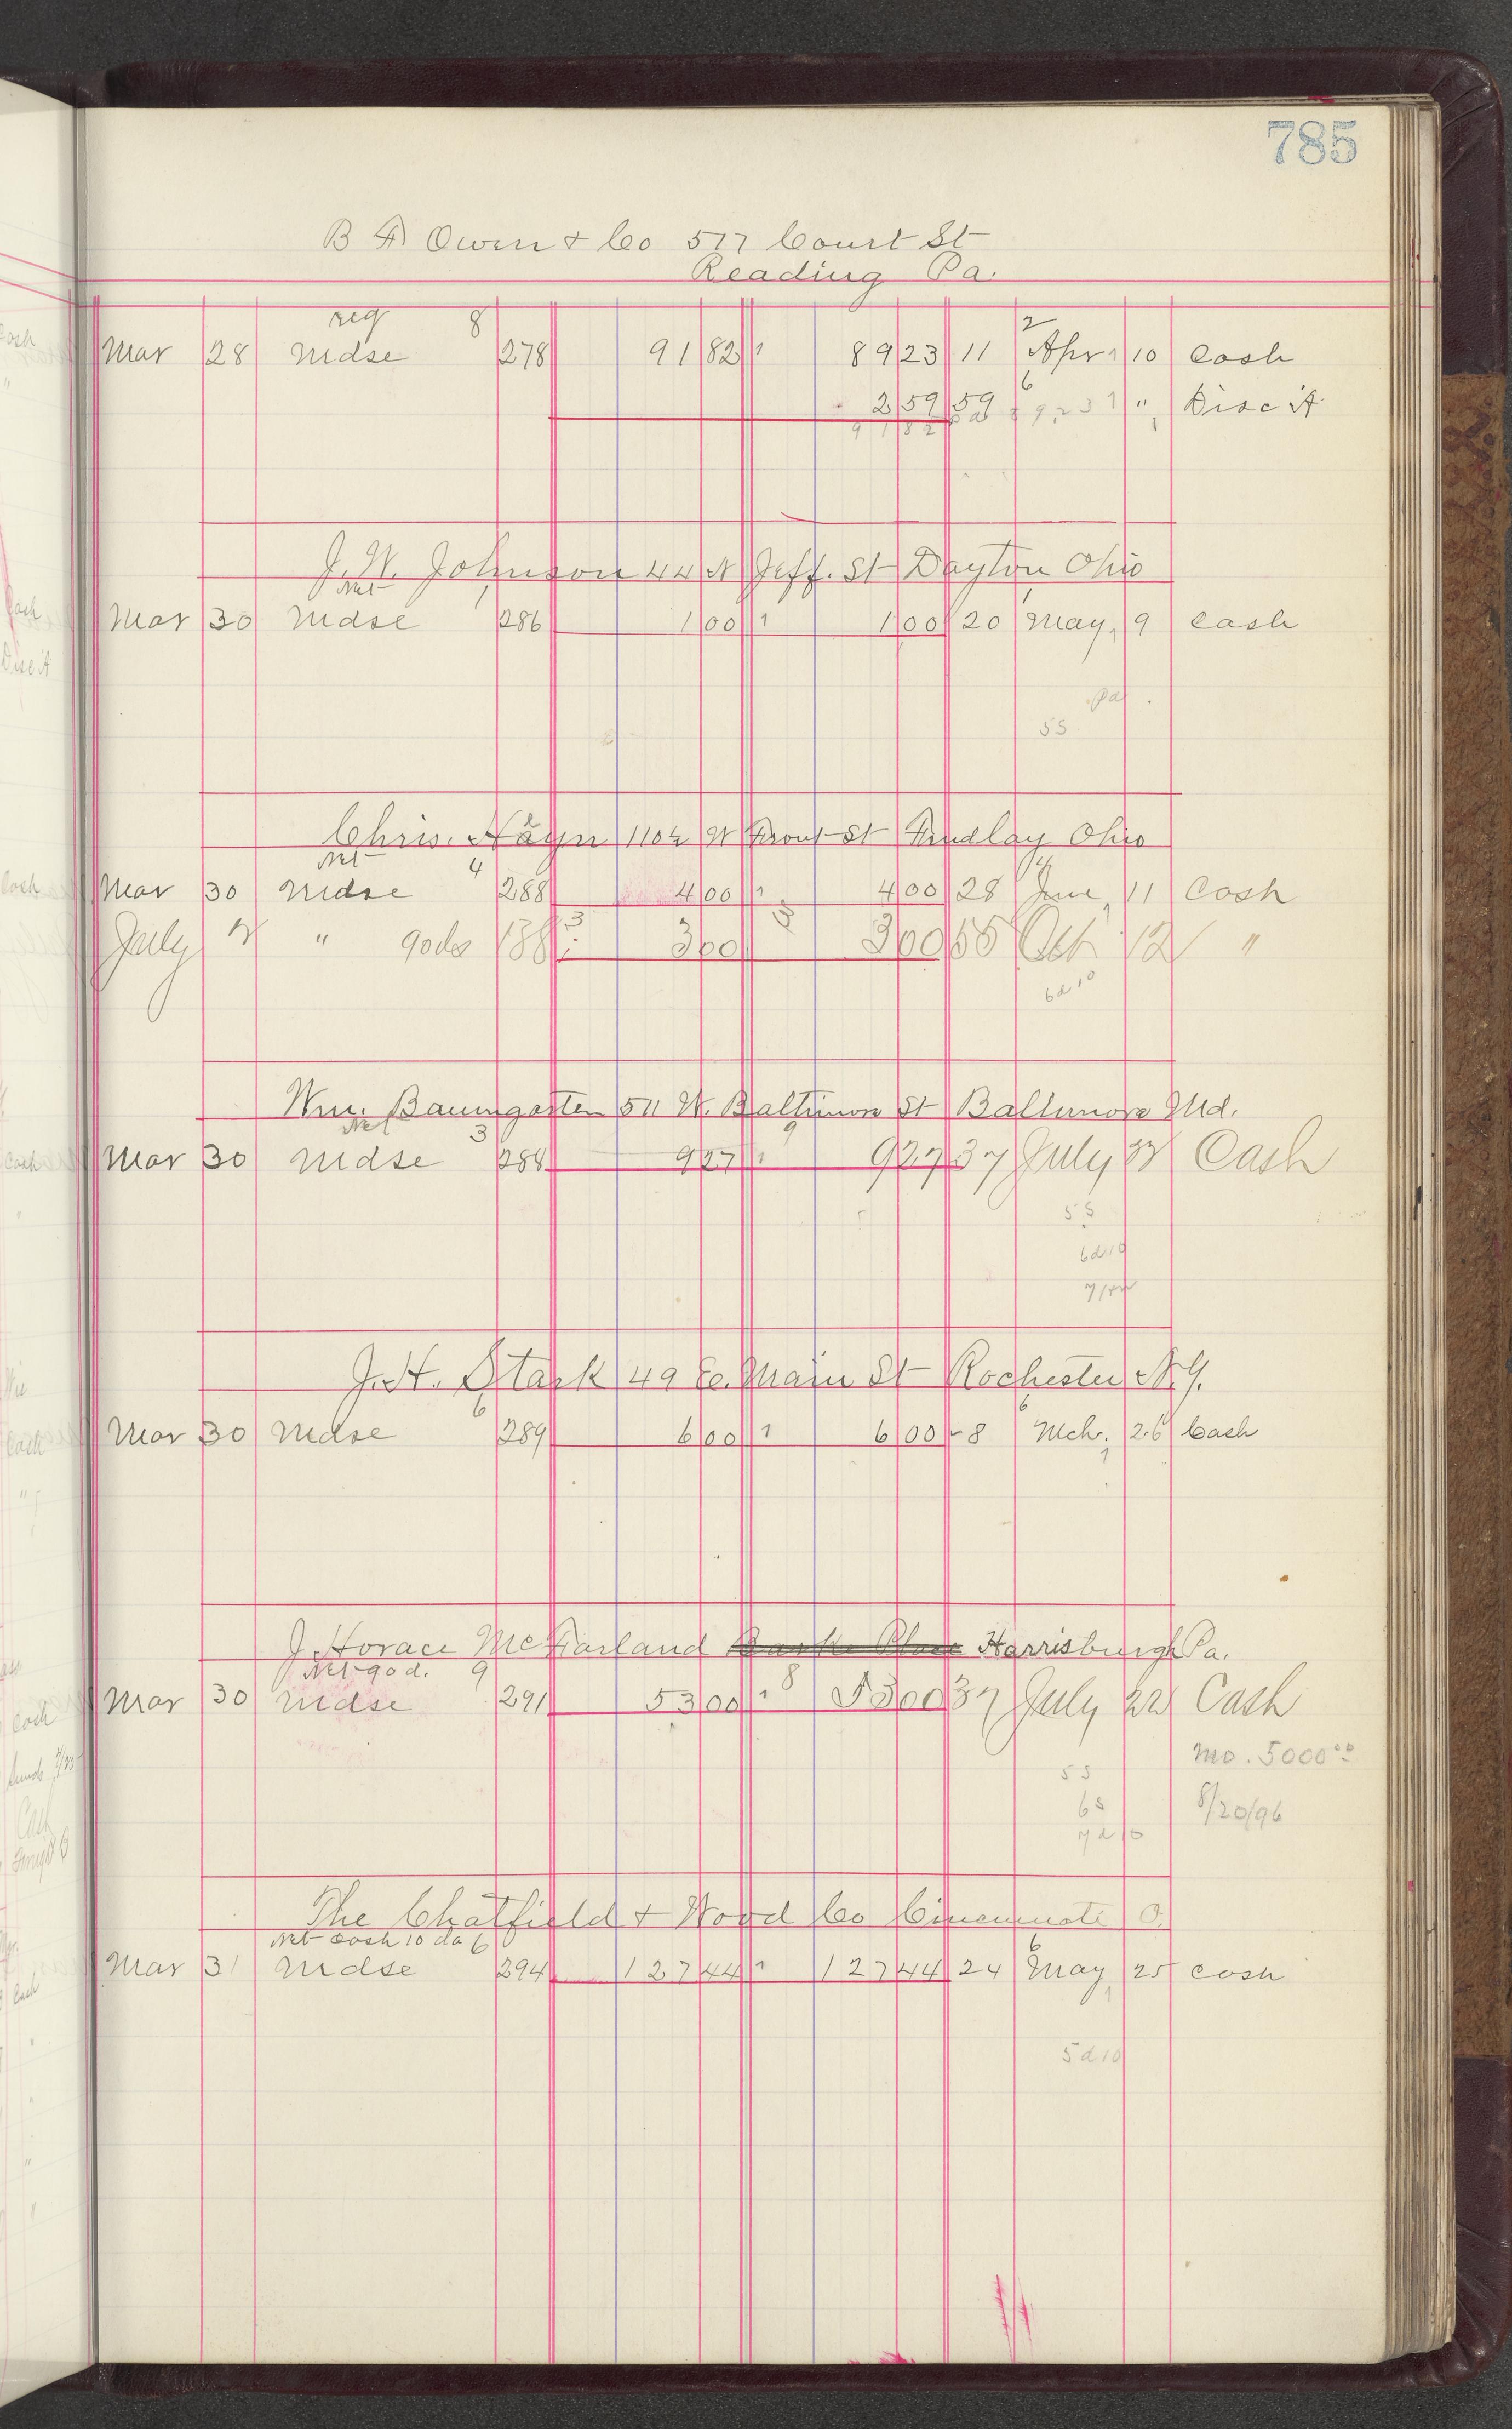 785
B F Owen & Co 517 Court St
Reading Pa.
reg 8 2
Mar 28 Mdse 278 91 82 89 23 11 Apr 10 Cash
6
2 59 59 " Disc't
91 82
J. W. Johnson 44 N Jeff. St Dayton Ohio
Net
Mar 30 Mdse 286 1 00 1 00 20 May 9 Cash
Pd
5 S
Chris. Hagn 110½ W Front St Findlay Ohio
Net 4
Mar 30 Mdse 288 4 00 4 00 28 June 11 Cash
3
July " 90 ds 188 3 00 3 00 55 Oct 12 "
6 d 10
Wm. Baumgarten 511 W. Baltimore St Baltimore Md.
Net 3 9
Mar 30 Mdse 284 9 27 9 27 37 July 22 Cash
5 S
6 d 10
J. H. Stark 49 E. Main St Rochester N.Y.
6 6
Mar 30 Mdse 289 6 00 6 00 8 Mch. 26 Cash
J. Horace McFarland Harrisburgh Pa.
Net 90 d. 9 8
Mar 30 Mdse 291 53 00 53 00 37 July 22 Cash
mo. 5000 00
5 S
6 S 8/20/96
7 d 10
The Chatfield & Wood Co Cincinnati O.
Net Cash 10 da 6 6
Mar 31 Mdse 294 127 44 127 44 24 May 25 Cash
5 d 10